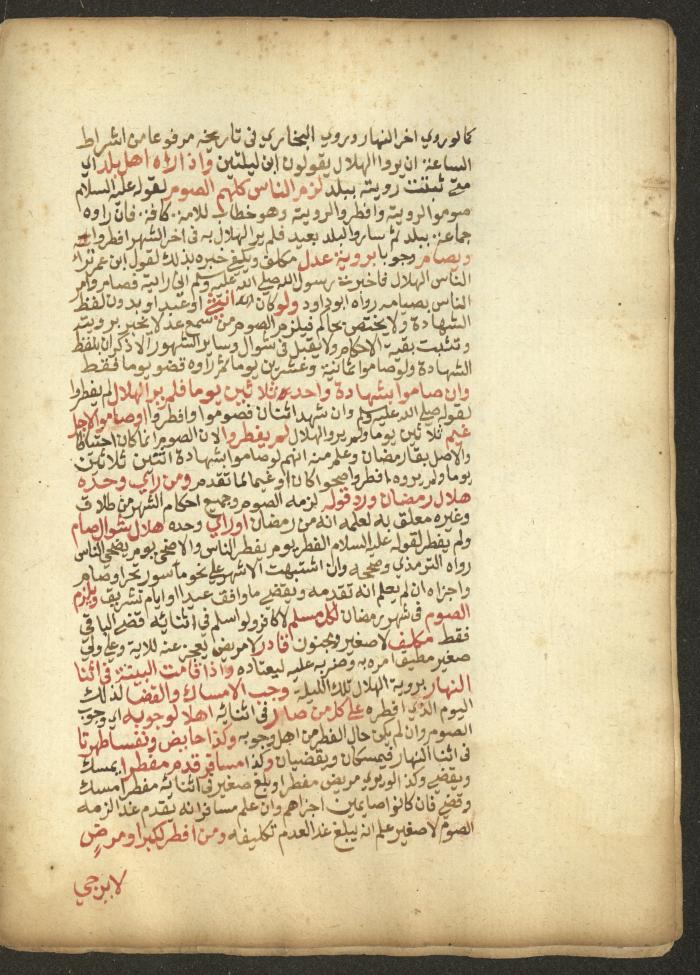 كما لو روي اخر النهار وروي البخاري في تاريخه مرفوعا من اشراط
الساعة ان يروا الهلال يقولون ابن ليلتين واذا راه اهل بلد اي
متى ثبتت رويته ببلد لزم الناس كلهم الصوم لقوله عليه السلام
صوموا لرويته وافطروا لرويته وهو خطاب للامة كافة فان راوه
جماعة ببلد ثم ساروا لبلد بعيد فلم ير الهلال به في اخر الشهر افطروا
ويصام وجوبا بروية عدل مكلف ويكفي خبره بذلك لقول ابن عمر تراى
الناس الهلال فاخبرت رسول الله صلى الله عليه وسلم اني رايته فصام وامر
الناس بصيامه رواه ابو داود ولو كان انثى او عبدا او بدون لفظ
الشهادة ولا يختص بحاكم فيلزم الصوم من سمع عدلا يخبر برويته
وتثبت بقية الاحكام ولا يقبل في شوال وساير الشهور الا ذكران بلفظ
الشهادة ولو صاموا ثمانية وعشرين يوما ثم راوه قضو يوما فقط
وان صاموا بشهادة واحد ثلاثين يوما فلم ير الهلال لم يفطروا
لقوله صلى الله عليه وسلم وان شهد اثنان فصوموا وافطروا او صاموا لاجل
غيم ثلاثين يوما ولم يروا الهلال لم يفطروا لان الصوم انما كان احتياطا
والاصل بقا رمضان وعلم منه انهم لو صاموا بشهادة اثنين ثلاثين
يوما ولم يروه افطروا صحوا كان او غيما لما تقدم ومن راي وحده
هلال رمضان ورد قوله لزمه الصوم وجميع احكام الشهر من طلاق
وغيره معلق به لعلمه انه من رمضان او راي وحده هلال شوال صام
ولم يفطر لقوله عليه السلام الفطر يوم يفطر الناس والاضحى يوم يضحي الناس
رواه الترمذي وصححه وان اشتبهت الاشهر على نحو ماسور تحرا وصام
واجزاه ان لم يعلم انه تقدمه ويقضي ما وافق عيدا او ايام تشريق ويلزم
الصوم في شهر رمضان لكل مسلم لا كافر ولو اسلم في اثنائه قضى الباقي
فقط مكلف لا صغير ومجنون قادر لا مريض يعجز عنه للاية وعلى ولي
صغير مطيق امره به وضربه عليه ليعتاده واذا قامت البينة في اثنا
النهار بروية الهلال تلك الليلة وجب الامساك والقضا لذلك
اليوم الذي افطره على كل من صار في اثنائه اهلا لوجوبه اي وجوب
الصوم وان لم يكن حال الفطر من اهل وجوبه وكذا حايض ونفسا طهرتا
في اثنا النهار فيمسكان ويقضيان وكذا مسافر قدم مفطرا يمسك
ويقضي وكذا لو بري مريض مفطرا او بلغ صغير في اثنائه مفطرا امسك
وقضي فان كانوا صايمين اجزاهم وان علم مسافر انه يقدم غدا لزمه
الصوم لا صغير علم انه يبلغ غدا لعدم تكليفه ومن افطر لكبر او مرض
لا يرجي